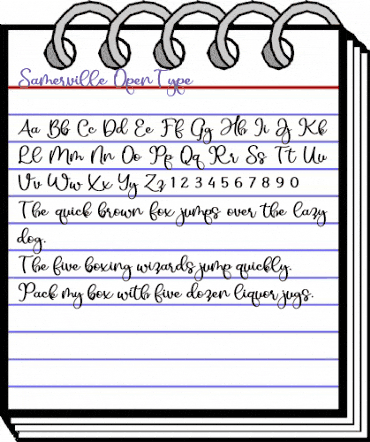 Samerville OpenType
Aa Bb Cc Dd Ee Ff Gg Hh Ii Jj Kk
Ll Mm Nn Oo Pp Qq Rr Ss Tt Uu
Vv Ww Xx Yy Zz 1 2 3 4 5 6 7 8 9 0
The quick brown fox jumps over the lazy
dog.
The five boxing wizards jump quickly.
Pack my box with five dozen liquor jugs.